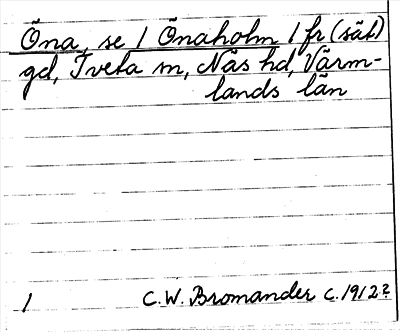 Öna, se / Önaholm / fr (sät)
gd, Tveta sn, Näs hd, Värm-
lands län
1 C.W. Bromander c. 1912?